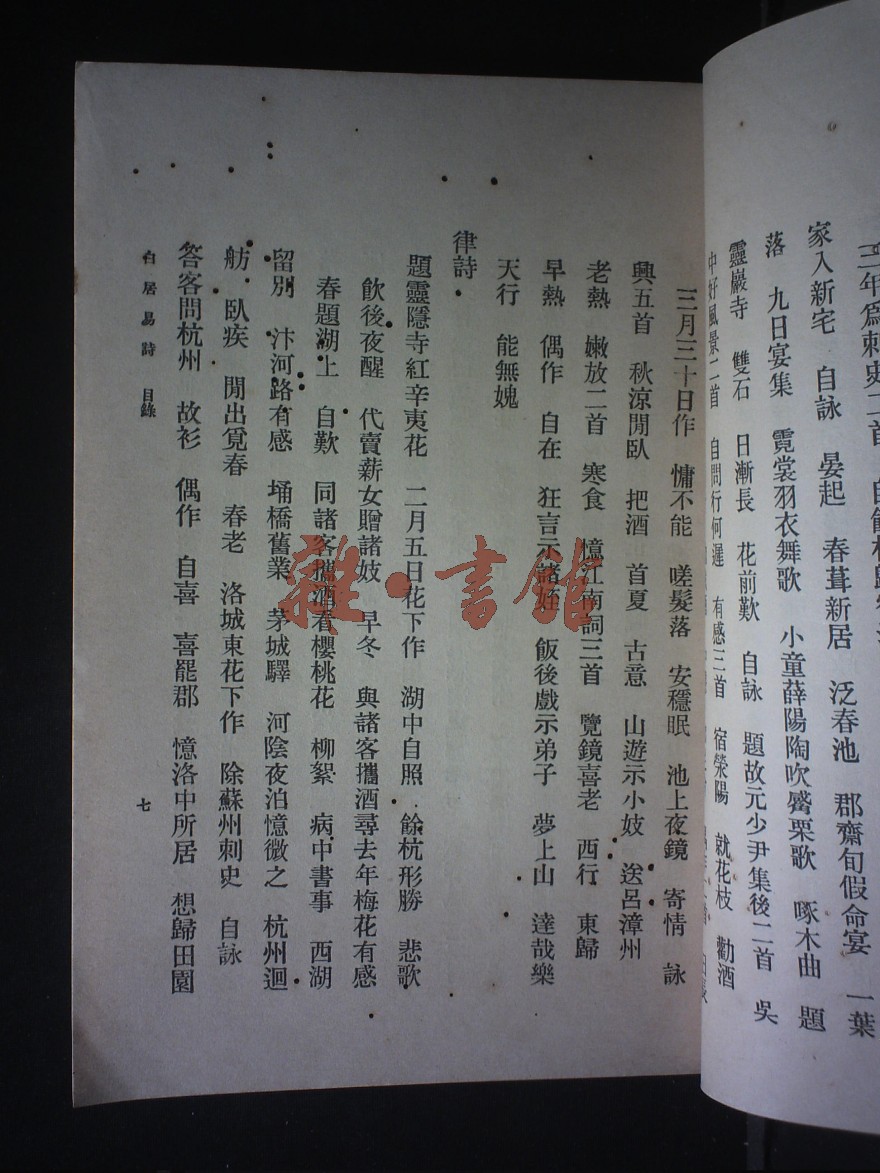 三年爲刺史二首
家入新宅　自詠　晏起　春葺新居　泛春池　郡齋旬假命宴　一葉
落　九日宴集　霓裳羽衣舞歌　小童薛陽陶吹觱栗歌　啄木曲　題
靈巖寺　雙石　日漸長　花前歎　自詠　題故元少尹集後二首　吳
中好風景二首　自問行何遲　有感三首　宿滎陽　就花枝　勸酒
三月三十日作　慵不能　嗟髮落　安穩眠　池上夜鏡　寄情　詠
興五首　秋涼閒臥　把酒　首夏　古意　山遊示小妓　送呂漳州
老熱　嫩放二首　寒食　憶江南詞三首　覽鏡喜老　西行　東歸
早熱　偶作　自在　狂言示諸姪　飯後戲示弟子　夢上山　達哉樂
天行　能無媿
律詩
題靈隱寺紅辛夷花　二月五日花下作　湖中自照　餘杭形勝　悲歌
飲後夜醒　代賣薪女贈諸妓　早冬　與諸客攜酒尋去年梅花有感
春題湖上　自歎　同諸客攜酒看櫻桃花　柳絮　病中書事　西湖
留別　汴河路有感　埇橋舊業　茅城驛　河陰夜泊憶微之　杭州迴
舫　臥疾　閒出覓春　春老　洛城東花下作　除蘇州刺史　自詠
答客問杭州　故衫　偶作　自喜　喜罷郡　憶洛中所居　想歸田園
白居易詩　目錄
七
雜·書館